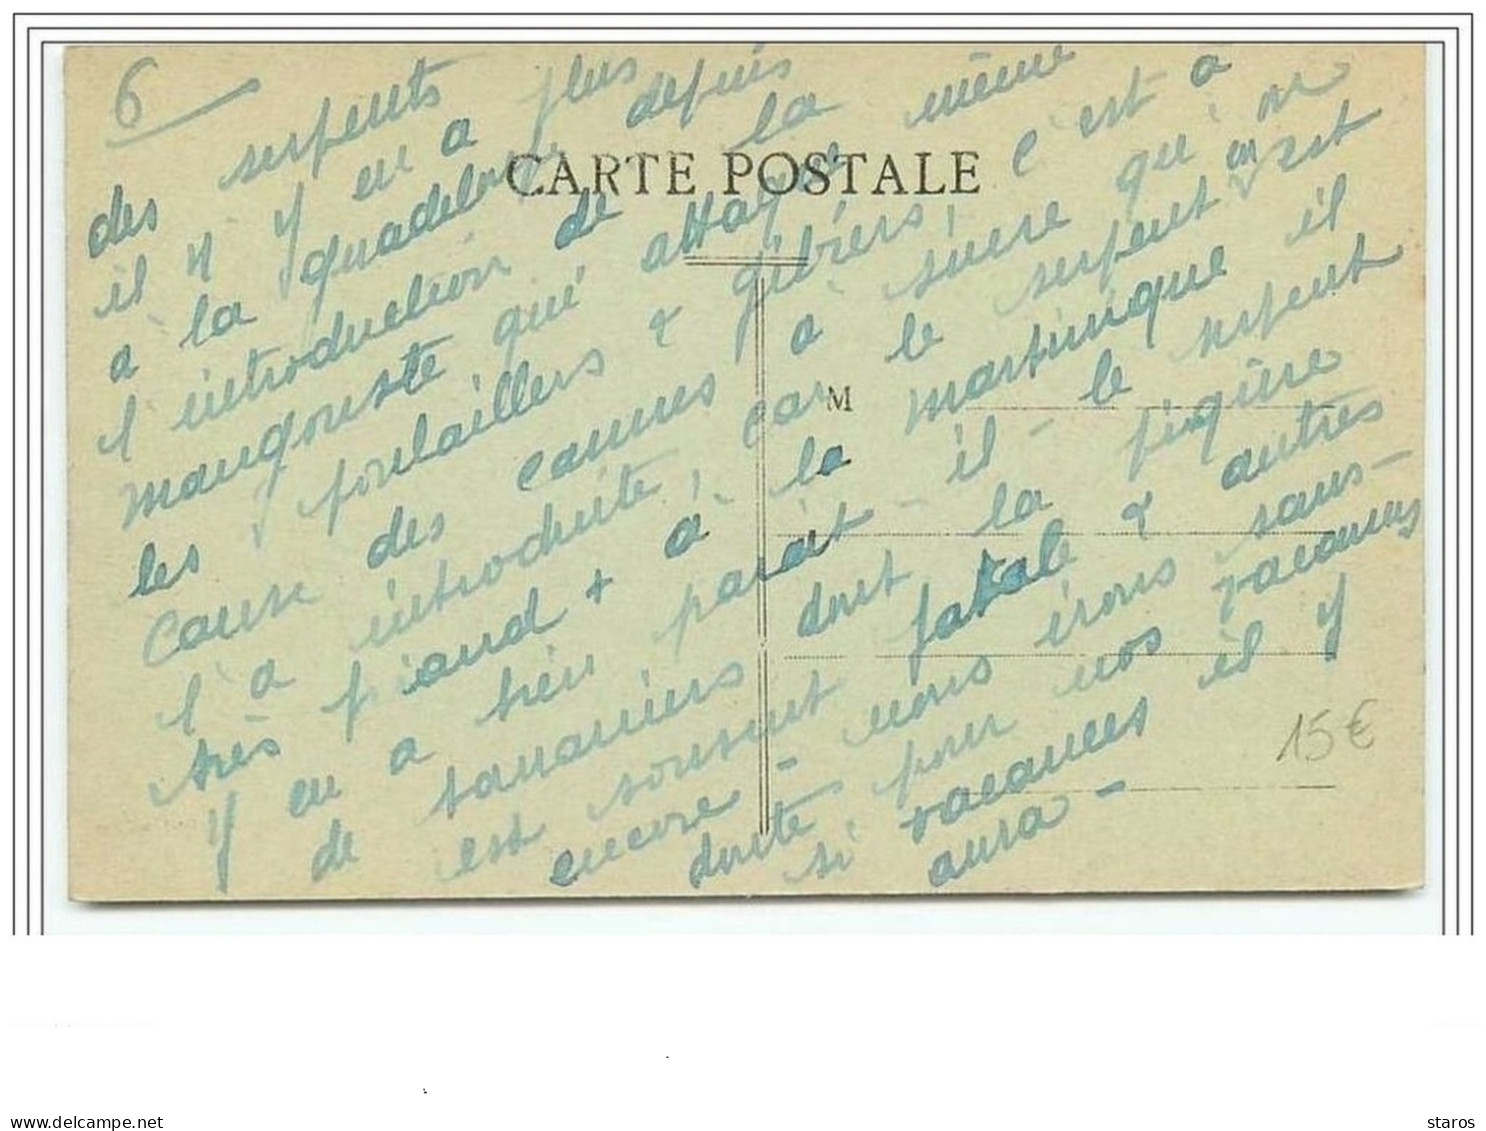 6
CARTE POSTALE
des serpents
il n'y en a plus
à la guadeloupe depuis
l'introduction de la
mangouste qui attaque même
les poulaillers & gibiers, c'est à
cause des cannes à sucre qu'on
l'a introduite, car le serpent en est
très friand + à la Martinique il
y en a bien parait-il - le serpent
de bananiers dont la piqûre
est souvent fatale & autres
encore - nous irons sans-
doute pour nos vacances
si vacances il y
aura -
M
15€
delcampe.net
staros